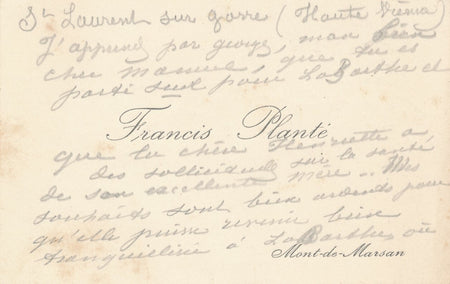 St Laurent sur gorre (Haute Vienne)
J'apprends par georges, mon bien
cher Manuel, que tu es
parti seul pour LaBarthe et
Francis Planté
que la chère Henriette a
des sollicitudes sur la santé
de son excellente mère.. Mes
souhaits sont bien ardents pour
qu'elle puisse revenir bien
tranquillisée à LaBarthe, où
Mont-de-Marsan